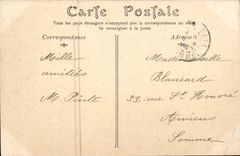 Carte Postale
Tous les pays étrangers n'acceptent pas la correspondance au recto
Se renseigner à la poste
Correspondance
Adresse
Mille
amitiés
M. Pinte
Mademoiselle
Blancard
33, rue St Honoré
Amiens
Somme